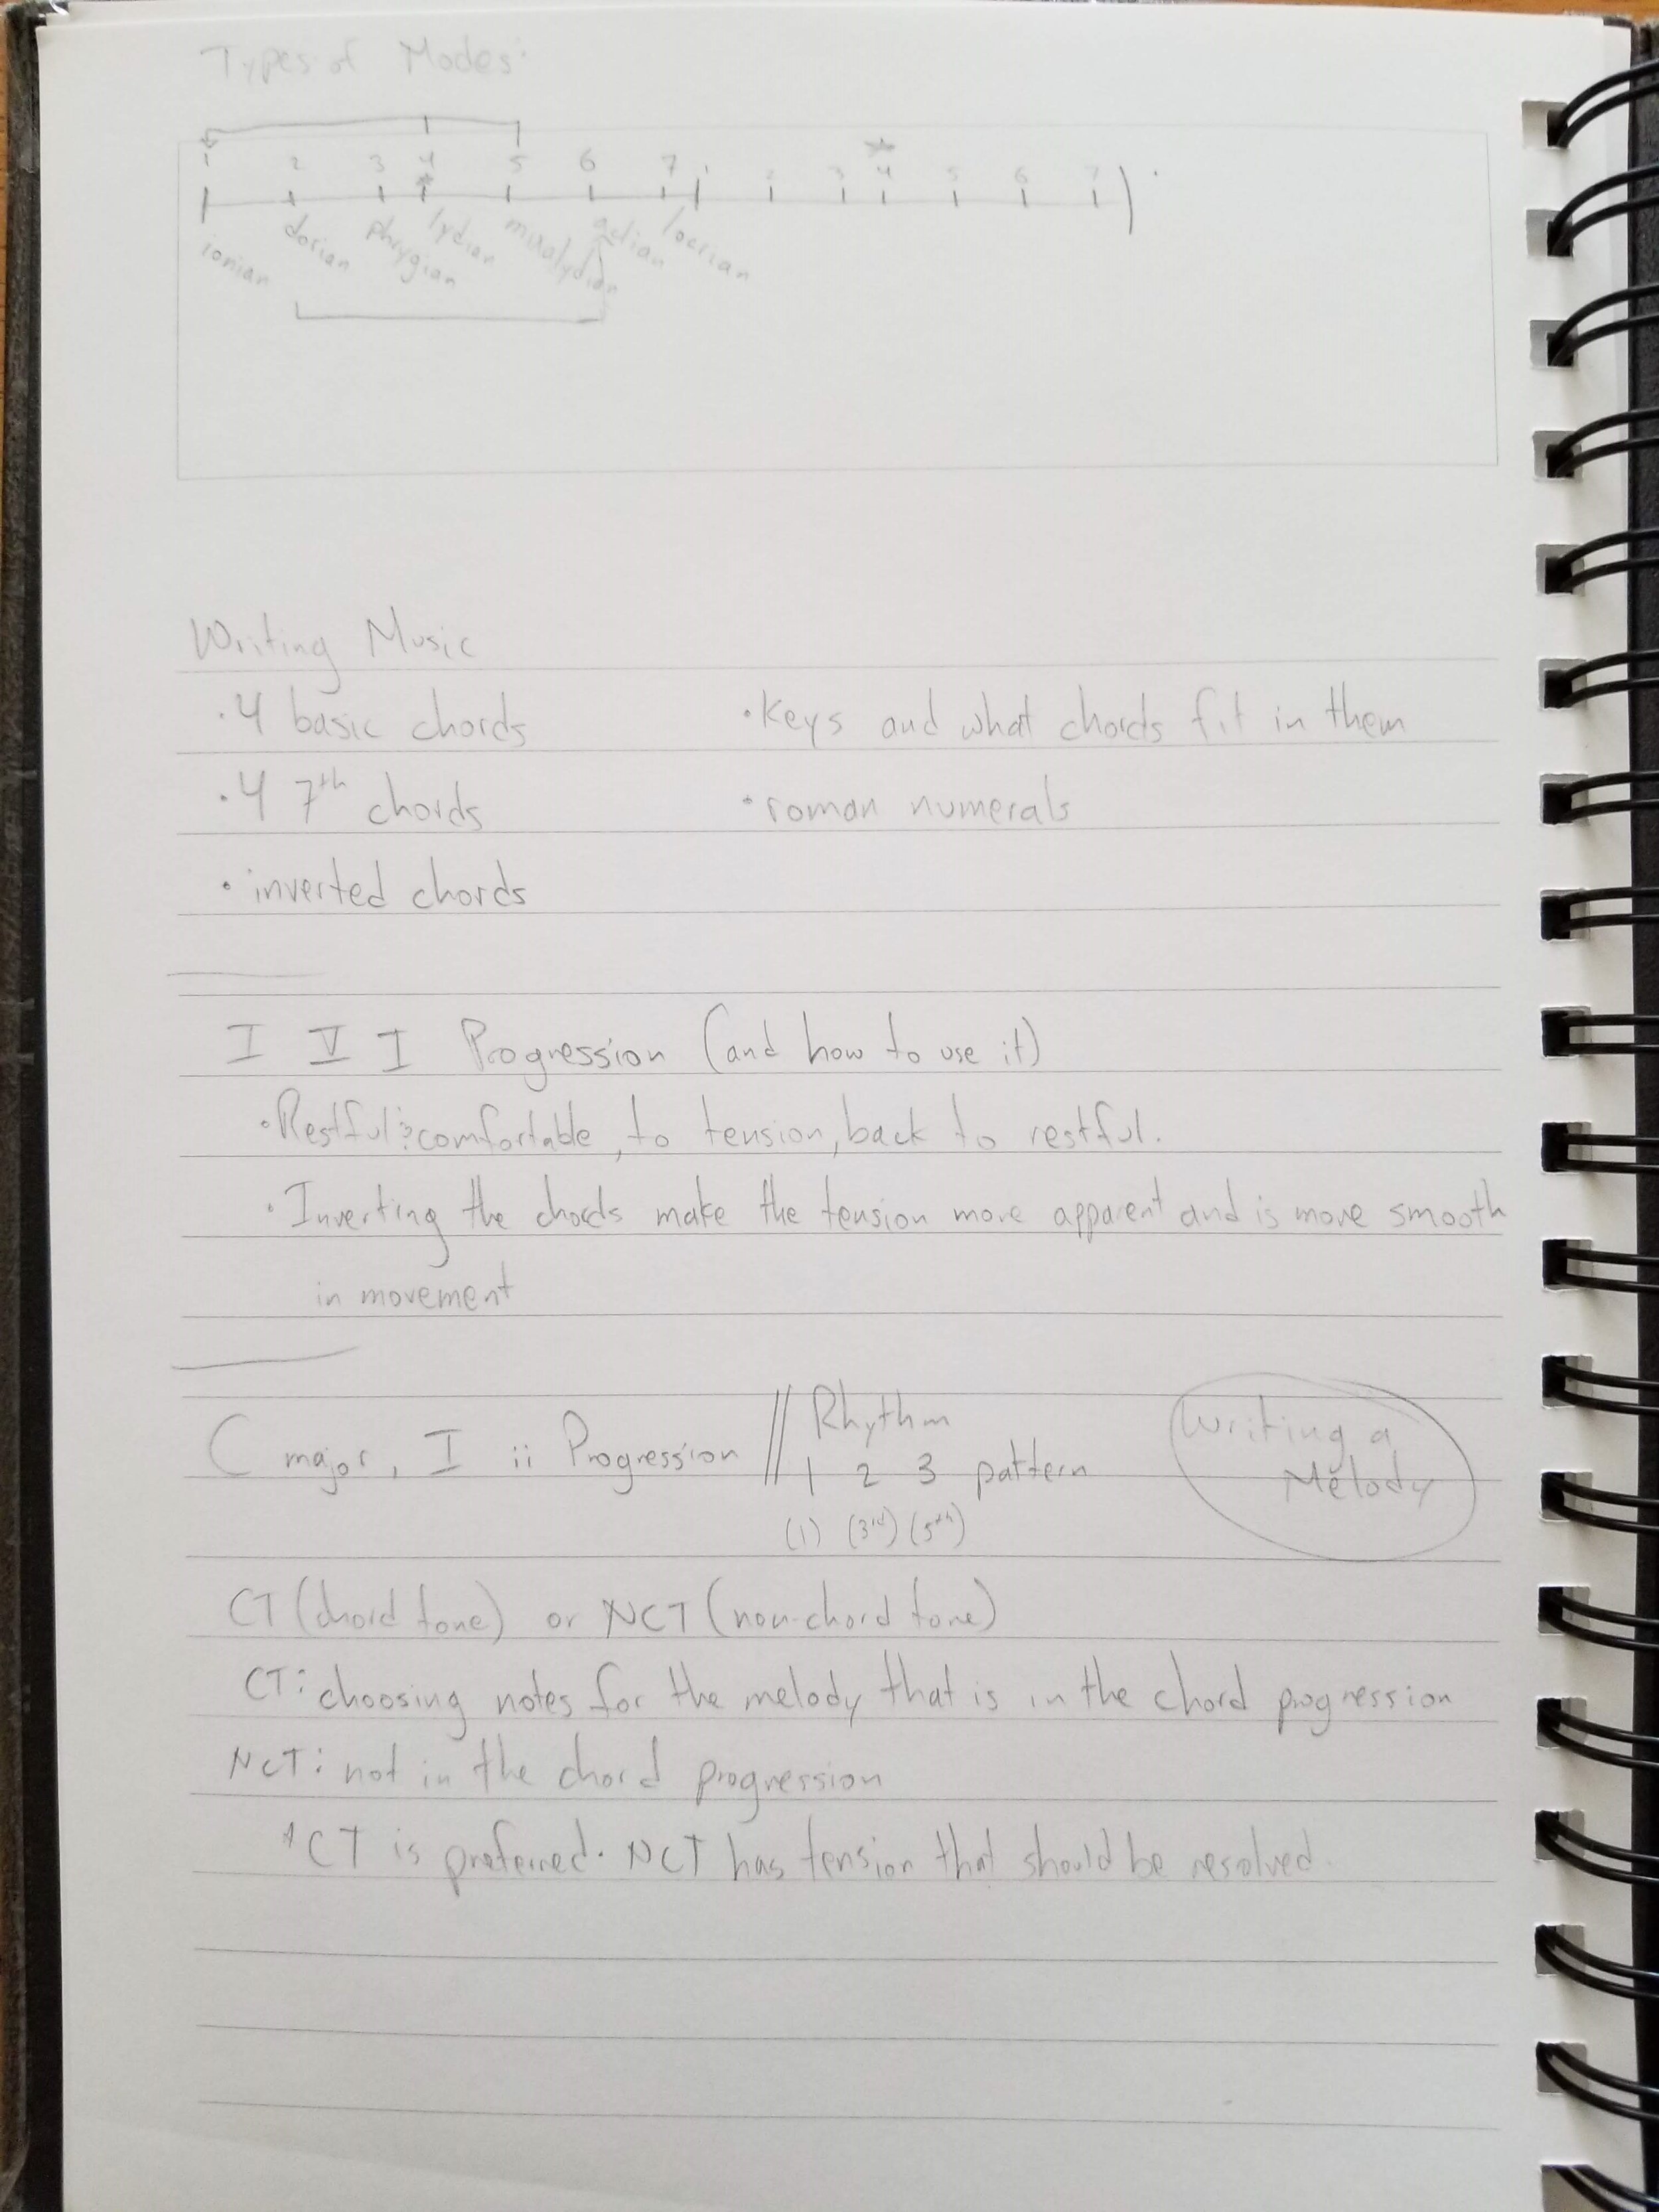 Types of Modes:
1 2 3 4 5 6 7 1 2 3 4 5 6 7
ionian dorian phrygian lydian mixolydian aelian locrian
Writing Music
· 4 basic chords · Keys and what chords fit in them
· 4 7th chords · roman numerals
· inverted chords
I V I Progression (and how to use it)
· Restful & comfortable, to tension, back to restful.
· Inverting the chords make the tension more apparent and is more smooth
in movement
C major, I ii Progression // Rhythm
1 2 3 pattern
(1) (3rd) (5th)
Writing a
Melody
CT (chord tone) or NCT (non-chord tone)
CT: choosing notes for the melody that is in the chord progression
NCT: not in the chord progression
*CT is preferred. NCT has tension that should be resolved.